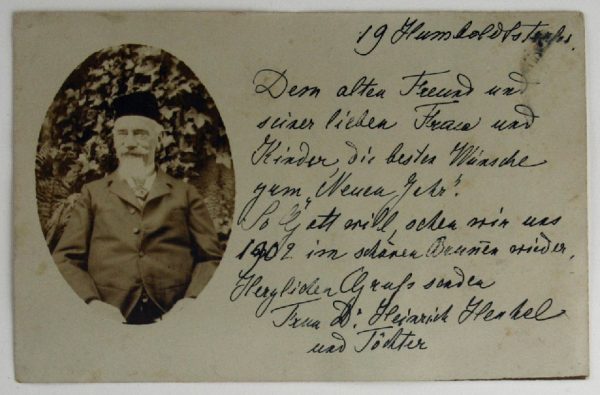 19 Humboldtstrasse.
Dem alten Freund und
seiner lieben Frau und
Kinder die besten Wünsche
zum „Neuen Jahr".
So Gott will, sehen wir uns
1902 im schönen Brunnen wieder.
Herzlichen Gruß senden
Frau Dr. Heinrich Henkel
und Töchter